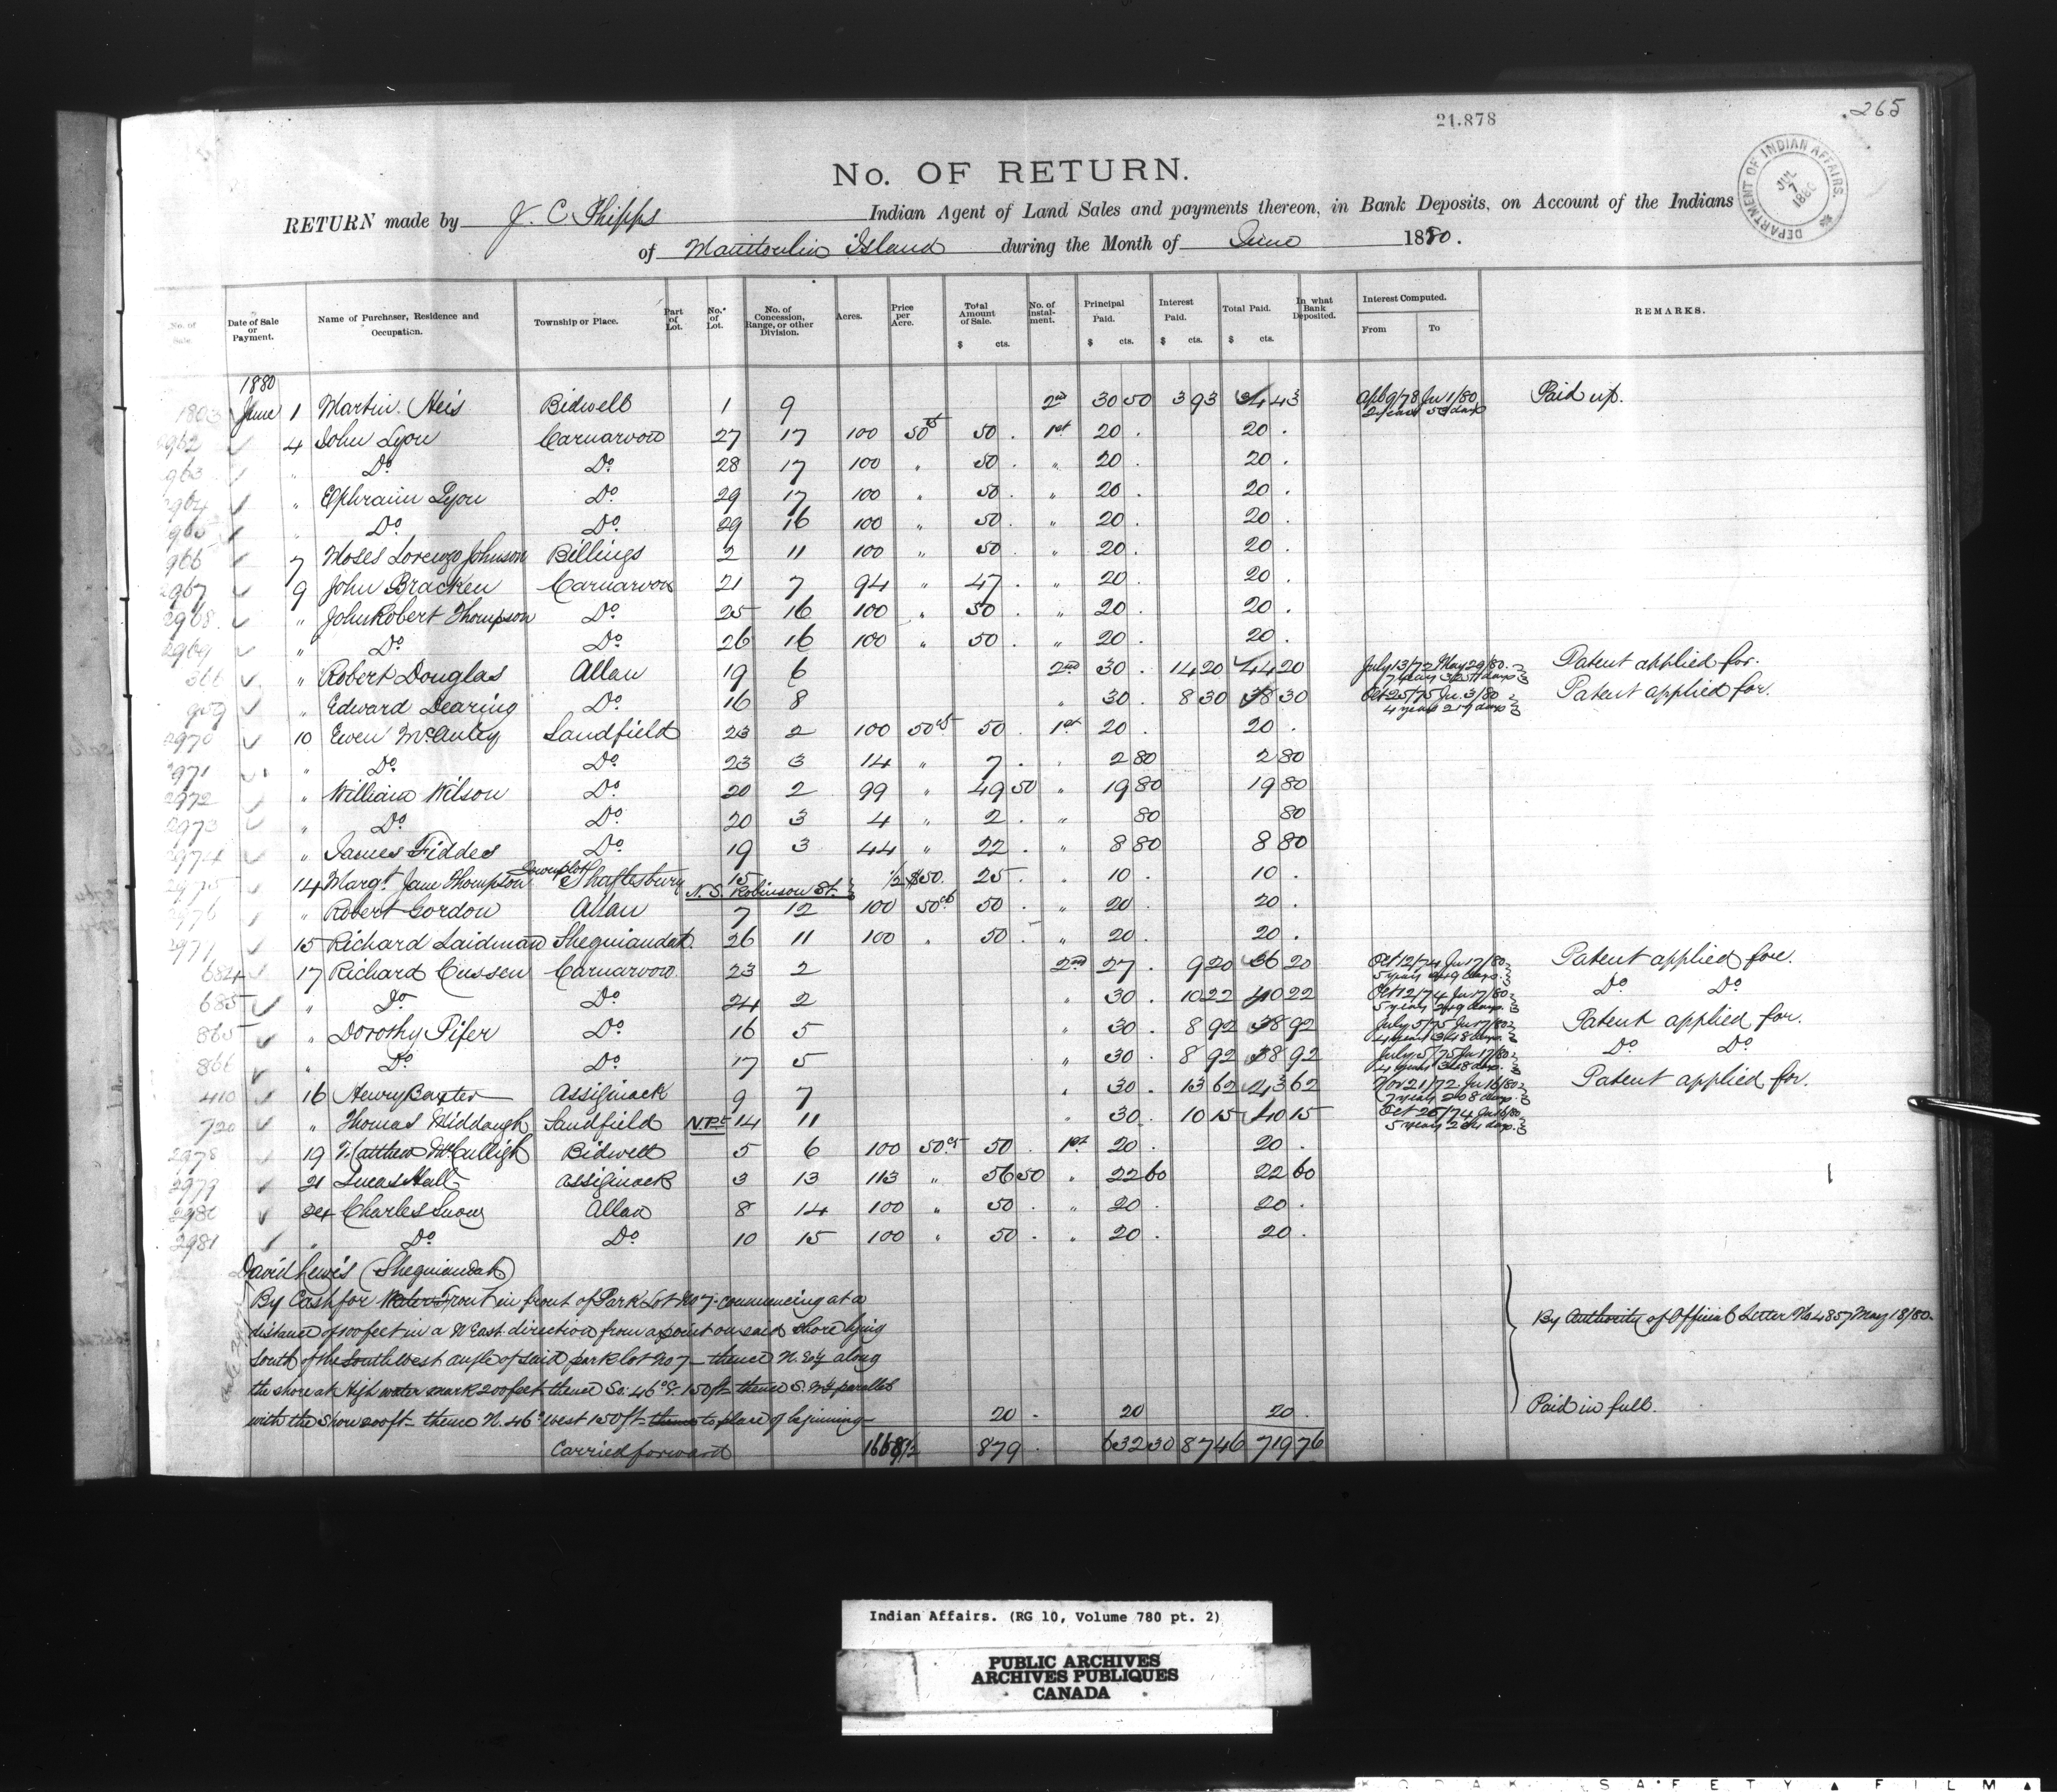 265
21.878
No. OF RETURN.
DEPARTMENT OF INDIAN AFFAIRS. JUL 7 1880
RETURN made by J. C. Phipps Indian Agent of Land Sales and payments thereon, in Bank Deposits, on Account of the Indians
of Manitoulin Island during the Month of June 1880.
No. of Sale. Date of Sale or Payment. Name of Purchaser, Residence and Occupation. Township or Place. Part of Lot. No. of Lot. No. of Concession, Range, or other Division. Acres. Price per Acre. Total Amount of Sale. $ cts. No. of Instalment. Principal Paid. $ cts. Interest Paid. $ cts. Total Paid. $ cts. In what Bank Deposited. Interest Computed. From To REMARKS.
1880
1803 June 1 Martin Heis Bidwell 1 9 2nd 30 50 3 93 34 43 Apl 9/78 Ju 1/80 2 years 53 days Paid up.
2962 4 John Lyon Carnarvon 27 17 100 50cts 50 . 1st 20 . 20 .
2963 " Do Do 28 17 100 " 50 . " 20 . 20 .
2964 " Ephraim Lyon Do 29 17 100 " 50 . " 20 . 20 .
2965 " Do Do 29 16 100 " 50 . " 20 . 20 .
2966 7 Moses Lorenzo Johnson Billings 2 11 100 " 50 . " 20 . 20 .
2967 9 John Bracken Carnarvon 21 7 94 " 47 . " 20 . 20 .
2968 " John Robert Thompson Do 25 16 100 " 50 . " 20 . 20 .
2969 " Do Do 26 16 100 " 50 . " 20 . 20 .
366 " Robert Douglas Allan 19 6 2nd 30 . 14 20 44 20 July 13/72 May 29/80 7 years days Patent applied for.
909 " Edward Dearing Do 16 8 " 30 . 8 30 38 30 Oct 25/75 Ju. 3/80 4 years 219 days Patent applied for.
2970 10 Ewen McAuley Sandfield 23 2 100 50cts 50 . 1st 20 . 20 .
2971 " Do Do 23 3 14 " 7 . " 2 80 2 80
2972 " William Wilson Do 20 2 99 " 49 50 " 19 80 19 80
2973 " Do Do 20 3 4 " 2 . " 80 80
2974 " James Fiddes Do 19 3 44 " 22 . " 8 80 8 80
2975 14 Margt. Jane Thompson Townplot Shaftesbury 15 N. S. Robinson St. 1/2 $50. 25 . " 10 . 10 .
2976 " Robert Gordon Allan 7 12 100 50cts 50 . " 20 . 20 .
2977 15 Richard Laidman Sheguiandah 26 11 100 " 50 . " 20 . 20 .
684 17 Richard Cussen Carnarvon 23 2 2nd 27 . 9 20 36 20 Oct 12/74 Ju 17/80 5 years 249 days. Patent applied for.
685 " Do Do 24 2 " 30 . 10 22 40 22 Oct 12/74 Ju 17/80 5 years 249 days. Do Do
865 " Dorothy Pifer Do 16 5 " 30 . 8 92 38 92 July 5/75 Ju 17/80 4 years 348 days. Patent applied for.
866 " Do Do 17 5 " 30 . 8 92 38 92 July 5/75 Ju 17/80 4 years 348 days. Do Do
410 16 Henry Baxter Assiginack 9 7 " 30 . 13 62 43 62 Nov 21/72 Ju 16/80 7 years 208 days. Patent applied for.
720 " Thomas Middaugh Sandfield N.Pt 14 11 " 30 . 10 15 40 15 Oct 26/74 Ju 16/80 5 years days.
2978 19 Matthew McCulligh Bidwell 5 6 100 50cts 50 . 1st 20 . 20 .
2979 21 Lucas Hall Assiginack 3 13 113 " 56 50 " 22 60 22 60
2980 24 Charles Snow Allan 8 14 100 " 50 . " 20 . 20 .
2981 " Do Do 10 15 100 " 50 . " 20 . 20 .
David Lewis (Sheguiandah)
By Cash for Water Front in front of Park Lot No 7 - commencing at a
distance of 100 feet in a N East direction from a point on said shore lying
South of the South West angle of said park lot No 7 - thence N. Ely along
the shore at High water mark 200 feet thence So: 46° E. 150 ft thence S. Wy parallel
with the Shore 200 ft - thence N. 46° West 150 ft thence to place of beginning 20 . 20 20 .
By Authority of Official Letter No 4857 May 18/80.
Paid in full.
Carried forward 1668 1/2 879 . 632 30 87 46 719 76
Indian Affairs. (RG 10, Volume 780 pt. 2)
PUBLIC ARCHIVES
ARCHIVES PUBLIQUES
CANADA
KODAK SAFETY FILM